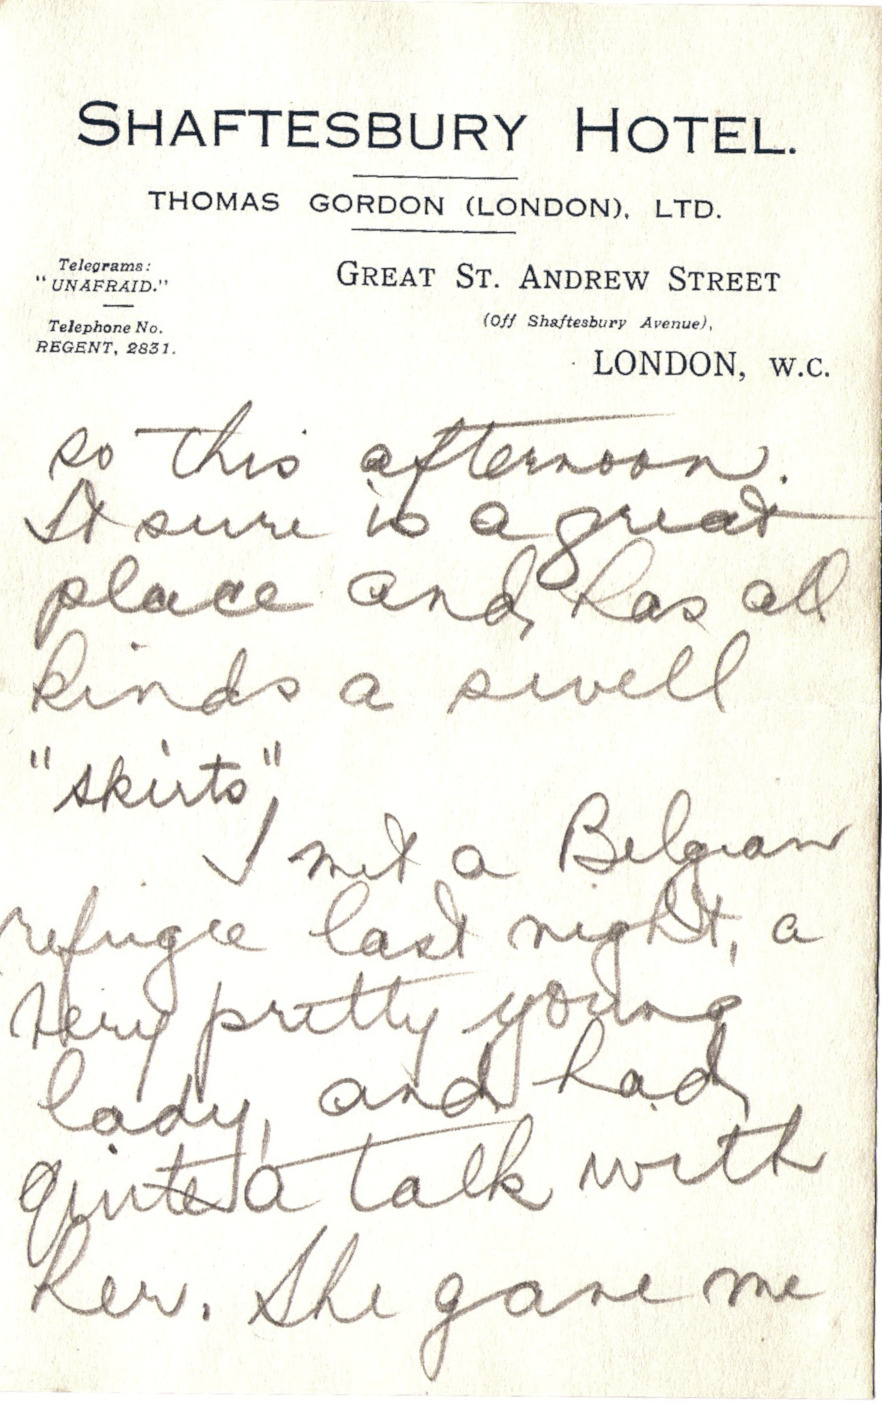 SHAFTESBURY HOTEL.
THOMAS GORDON (LONDON), LTD.
Telegrams:
"UNAFRAID."
Telephone No.
REGENT, 2831.
GREAT ST. ANDREW STREET
(Off Shaftesbury Avenue),
LONDON, W.C.
so this afternoon.
It sure is a great
place and has all
kinds a swell
"skirts",
I met a Belgian
refugee last night, a
very pretty young
lady, and had
quite a talk with
her. She gave me